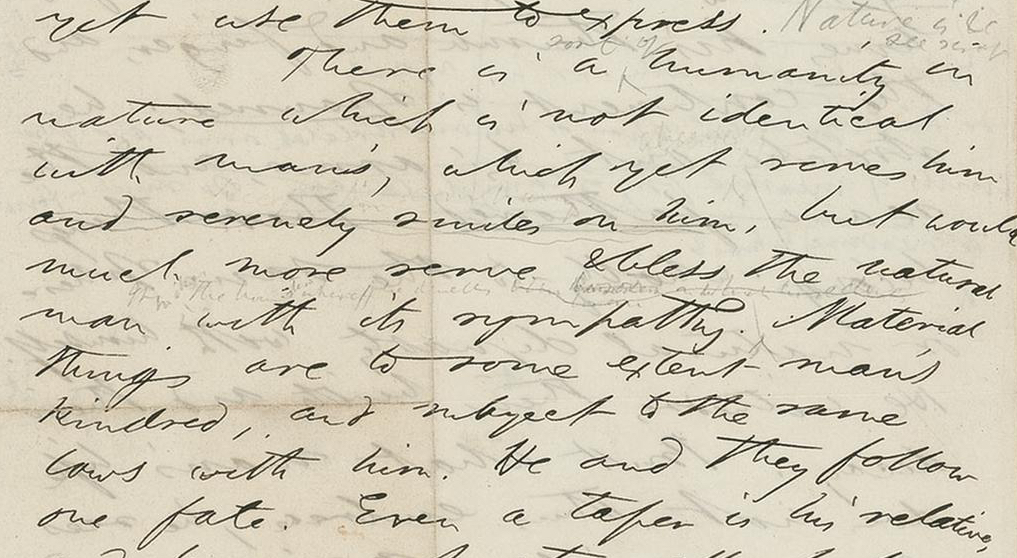 yet use them to express. Nature is
sort of
There is a humanity in
nature which is not identical
with man's, which yet serves him
and serenely smiles on him, but would
much more serve & bless the natural
man with its sympathy. Material
things are to some extent man's
kindred, and subject to the same
laws with him. He and they follow
one fate. Even a taper is his relative